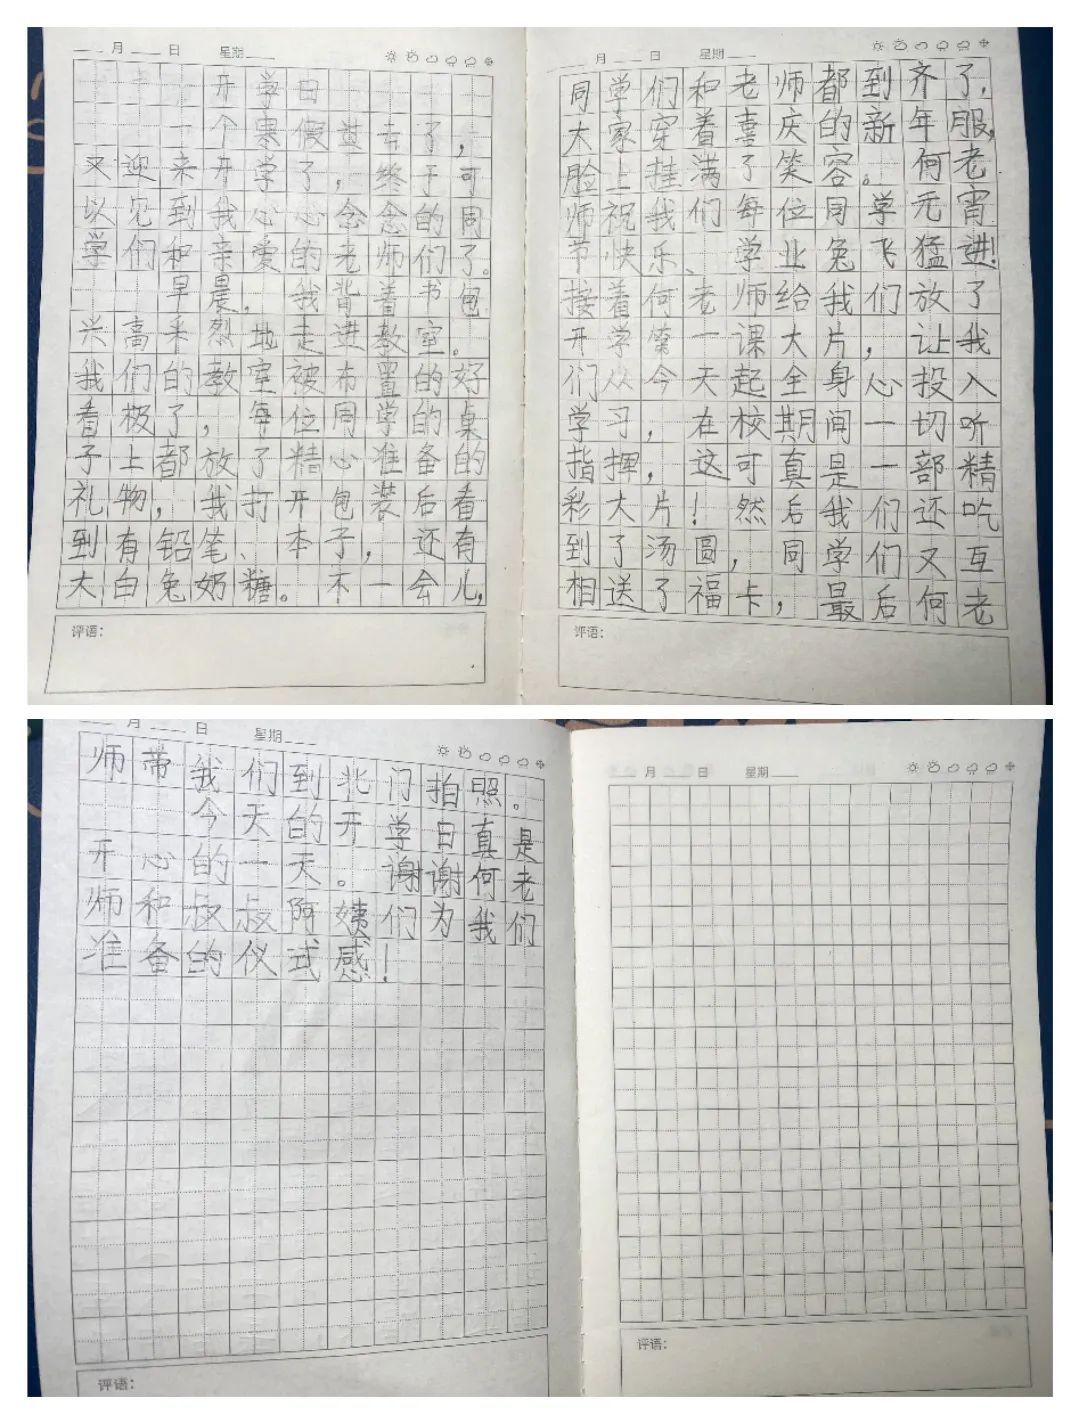 月 日 星期
开学日
一个寒假过去了，
又迎来开学了，终于可
以见到我心心念念的同
学们和亲爱的老师们了。
早晨，我背着书包
兴高采烈地走进教室。
我们的教室被布置的好
看极了，每位同学的桌
子上都放了精心准备的
礼物，我打开包装后看
到有铅笔、本子，还有
大白兔奶糖。不一会儿，
评语：
月 日 星期
同学们和老师都到齐了，
大家穿着喜庆的新年服，
脸上挂满了笑容。何老
师祝我们每位同学元宵
节快乐、学业兔飞猛进！
接着何老师给我们放了
开学第一课大片，让我
们从今天起全身心投入
学习，在校期间一切听
指挥，这可真是一部精
彩大片！然后我们还吃
到了汤圆，同学们又互
相送了福卡，最后何老
评语：
月 日 星期
师带我们到北门拍照。
今天的开学日真是
开心的一天。谢谢何老
师和叔叔阿姨们为我们
准备的仪式感！
评语：
月 日 星期
评语：